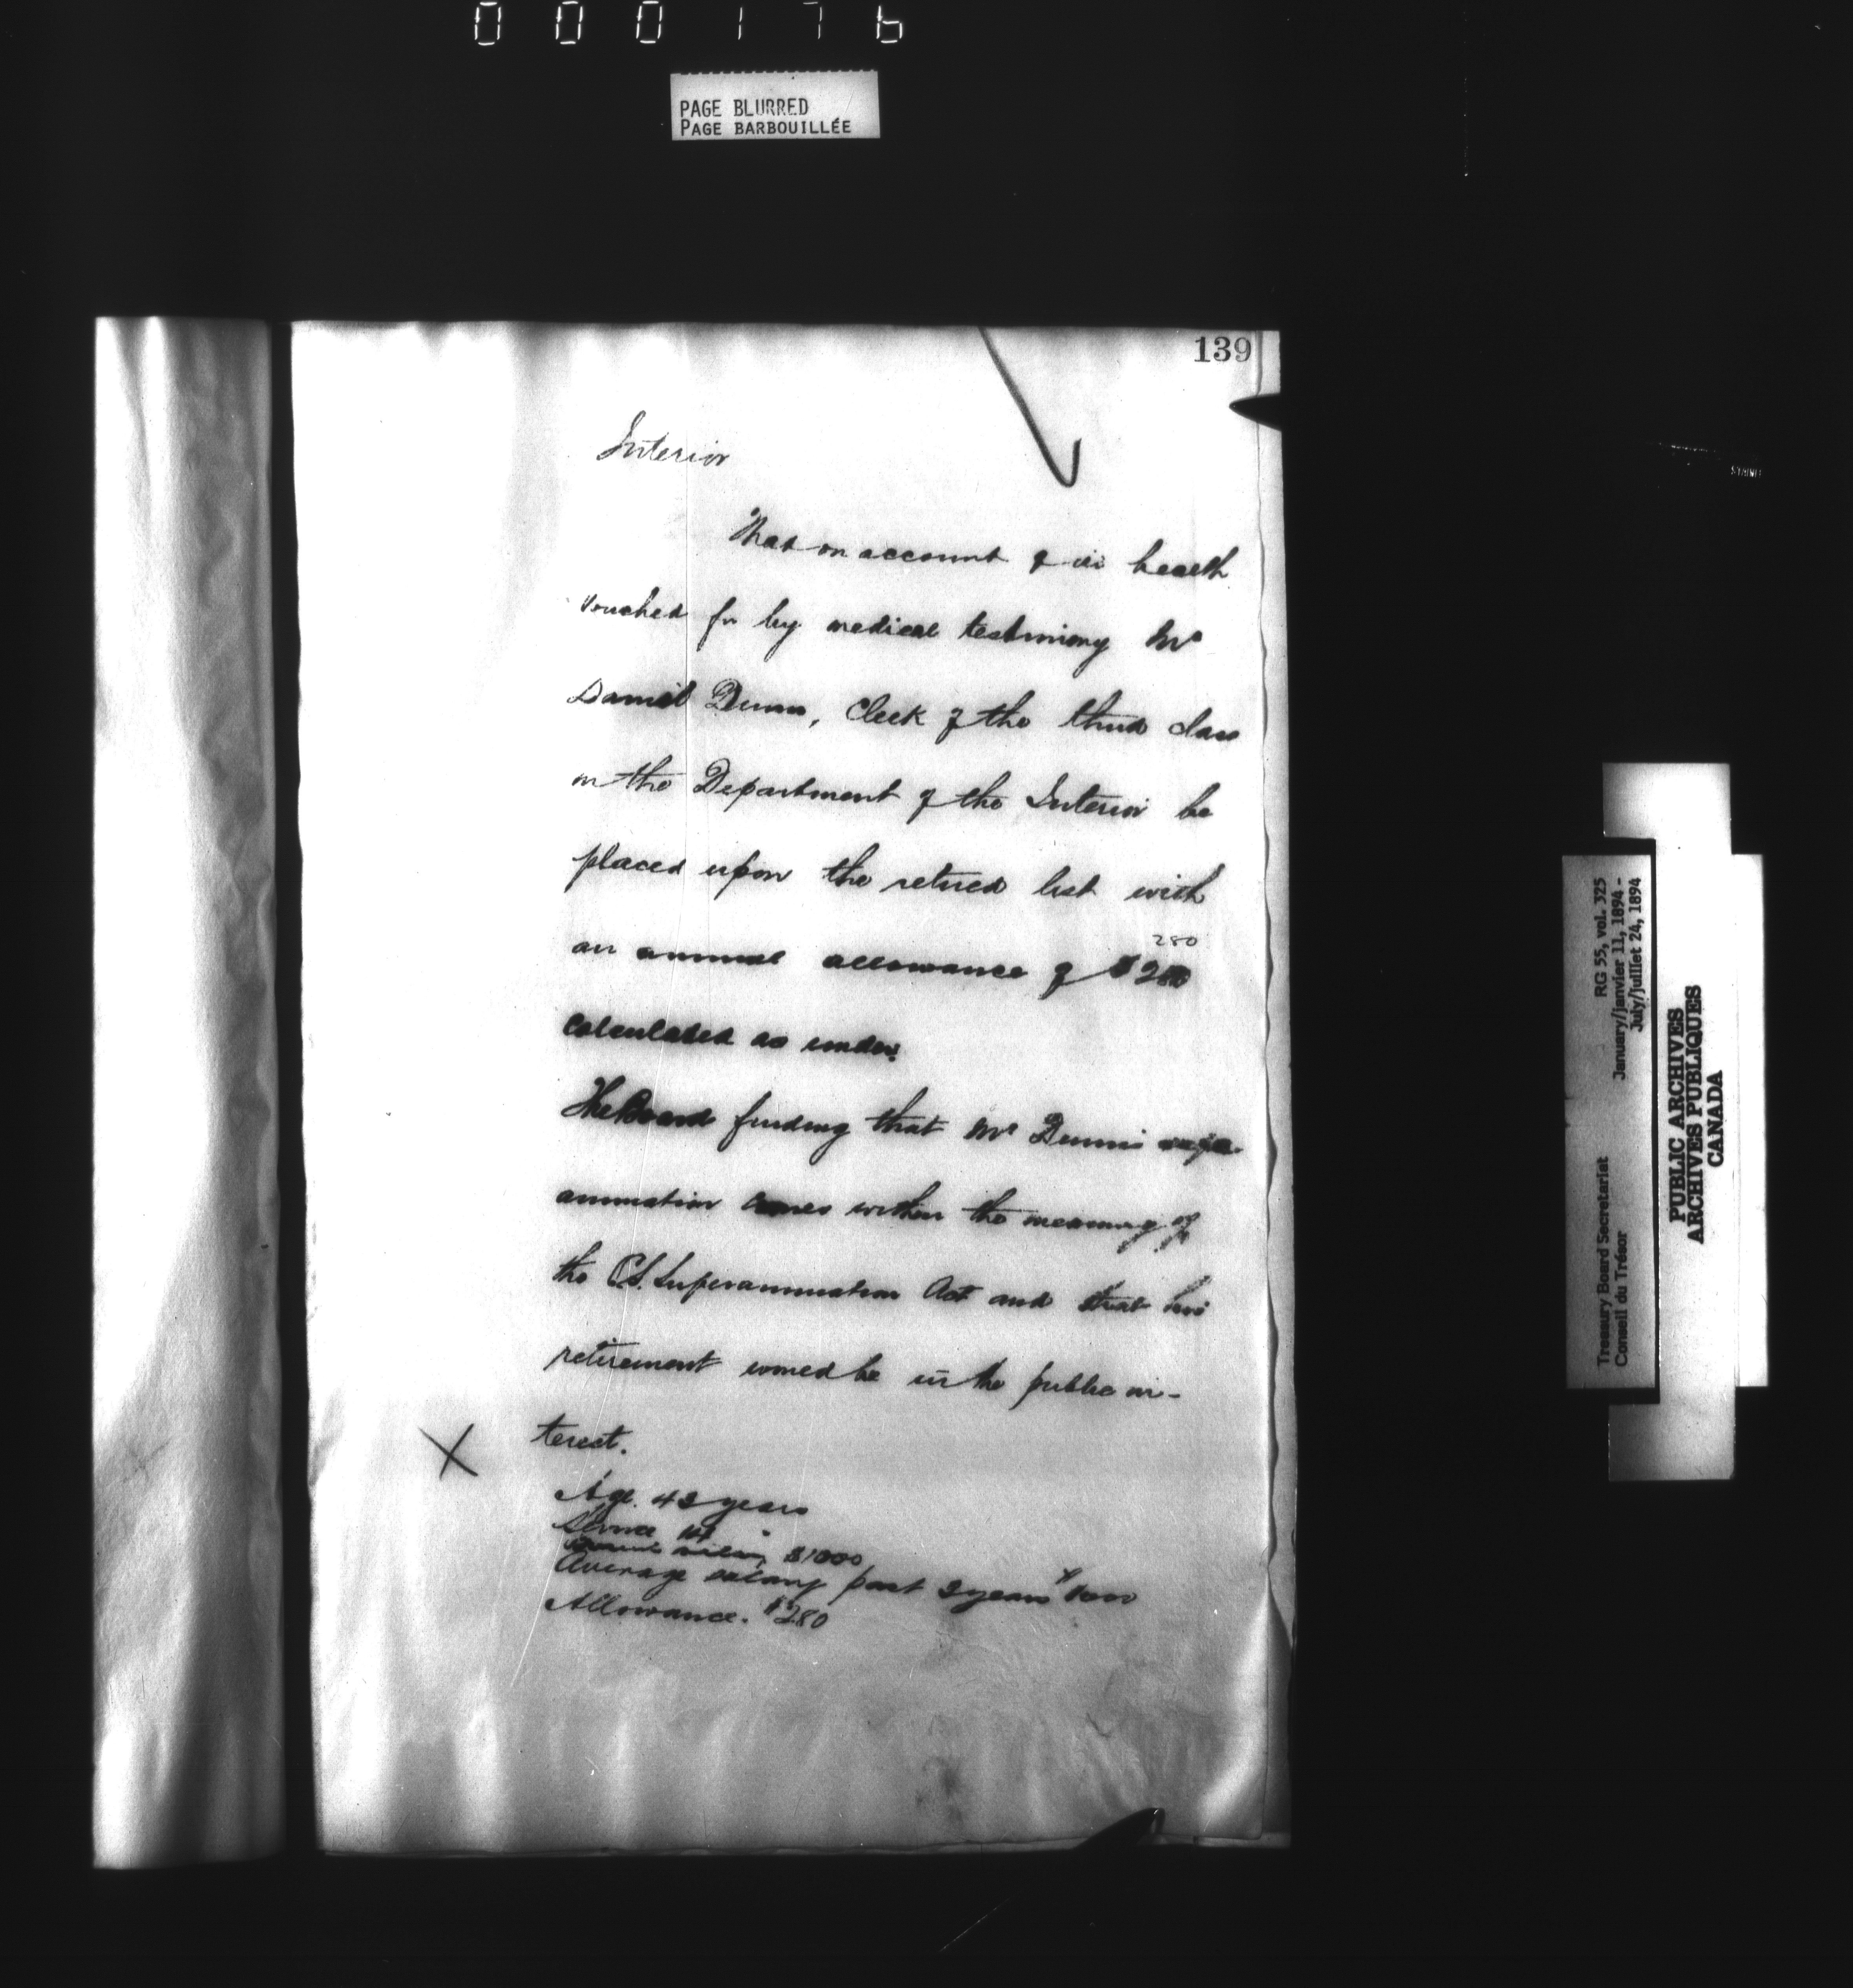 000176
PAGE BLURRED
PAGE BARBOUILLÉE
139
Interior
That on account of ill health
vouched for by medical testimony Mr
Daniel Dunn, Clerk of the third class
in the Department of the Interior be
placed upon the retired list with
280
an annual allowance of $280
calculated as under.
The Board finding that Mr Dunn's super-
annuation comes within the meaning of
the C.S. Superannuation Act and that his
retirement would be in the public in-
X terest.
Age. 43 years
Service 14 "
$1000
Average salary past 3 years $1000
Allowance. $280
Treasury Board Secretariat RG 55, vol. 325
Conseil du Trésor January/janvier 11, 1894 -
July/juillet 24, 1894
PUBLIC ARCHIVES
ARCHIVES PUBLIQUES
CANADA